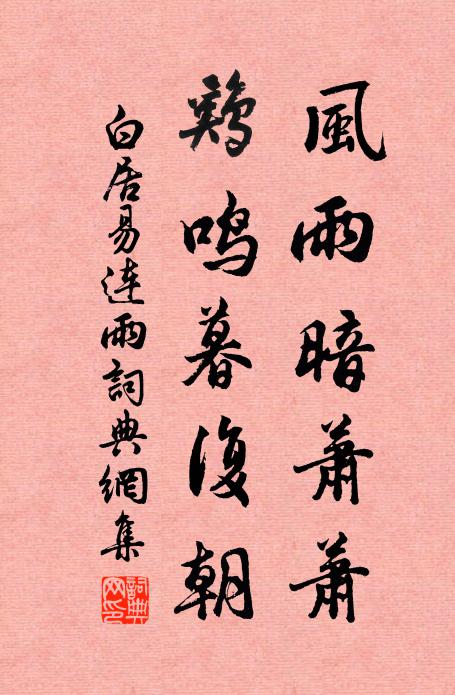 風雨暗蕭蕭
鷄鳴暮復朝
白居易連雨詞典網集
詞典網印